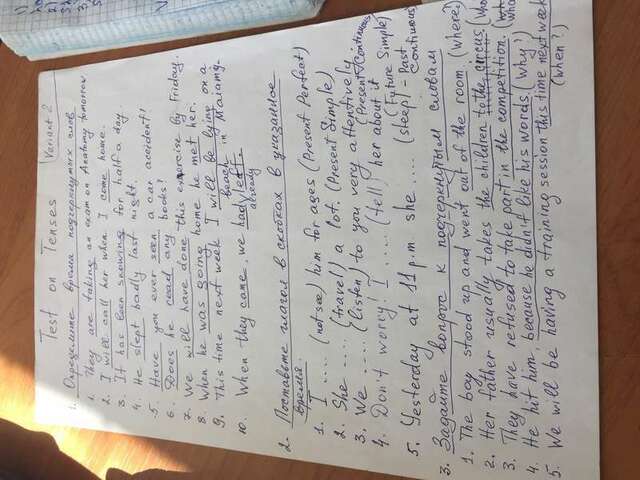 Test on Tenses
Variant 2
1. Определите время подчеркнутых слов
1. They are taking an exam on Anatomy tomorrow
2. I will call her when I come home.
3. It has been snowing for half a day.
4. He slept badly last night.
5. Have you ever seen a car accident?
6. Does he read any books?
7. We will have done this exercise by Friday.
8. When he was going home he met her.
9. This time next week I will be lying on a
beach in Maiamy.
10. When they came, we had left.
already
2. Поставьте глагол в скобках в указанное
время.
1. I .... (not see) him for ages (Present Perfect)
2. She .... (travel) a lot. (Present Simple)
3. We .... (listen) to you very attentively.
(Present Continuous
4. Don't worry! I .... (tell) her about it
(Future Simple)
5. Yesterday at 11 p.m. she .... (sleep) - Past
Continuous)
3. Задайте вопрос к подчеркнутым словам
1. The boy stood up and went out of the room. (where?)
2. Her father usually takes the children to the circus
3. They have refused to take part in the competition.
4. He hit him, because he didn't like his words. (why?)
5. We will be having a training session this time next week
(when?)